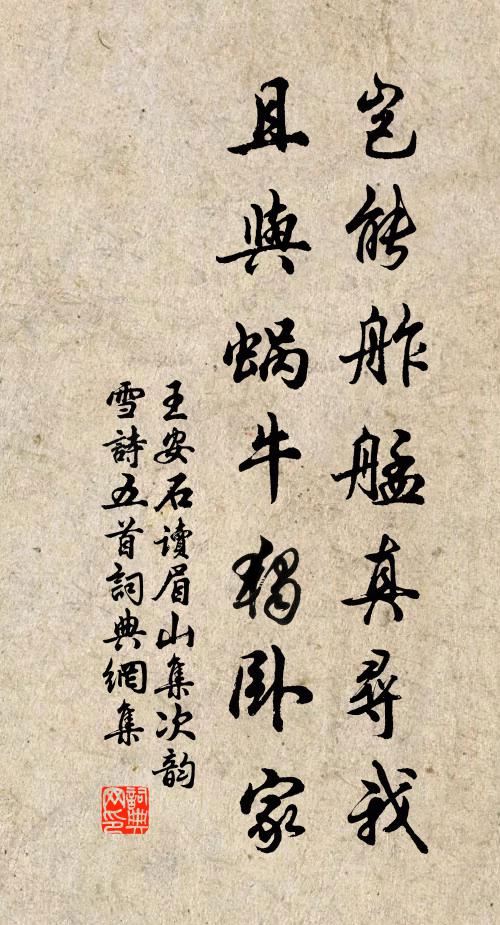 豈能舴艋真尋我
且與蝸牛獨臥家
王安石讀眉山集次韵
雪詩五首詞典網集
詞典
网印